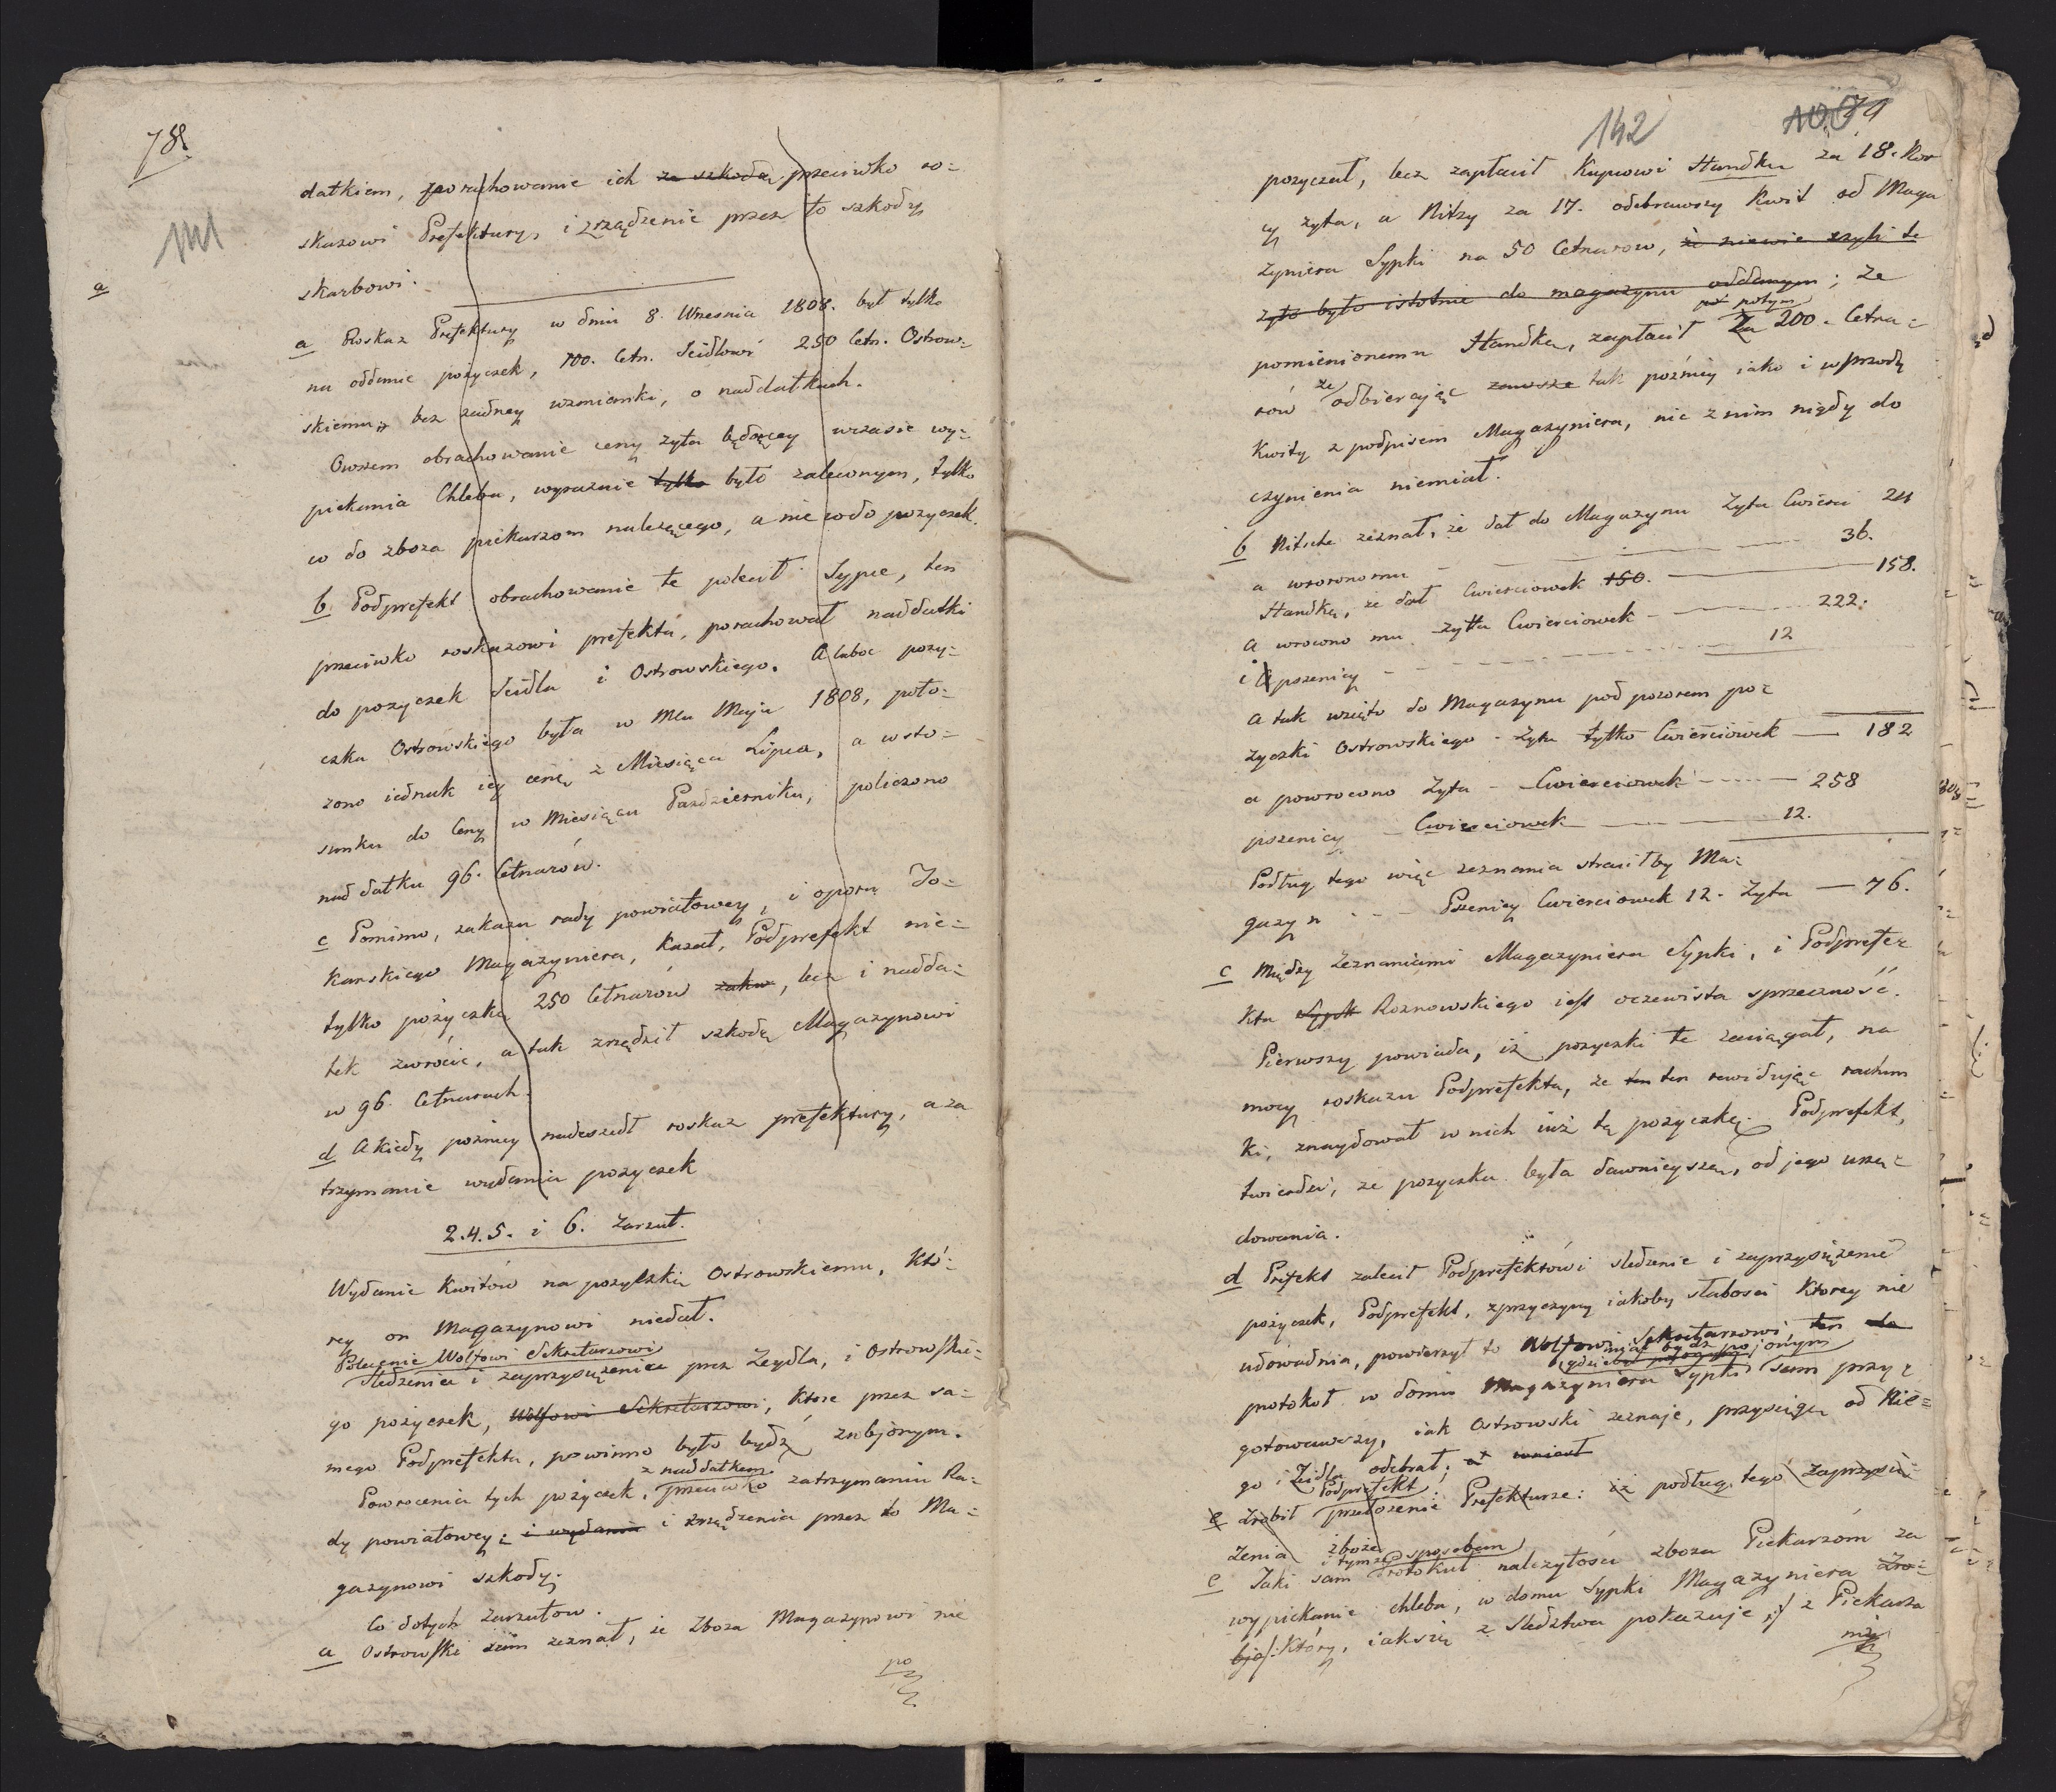 78.
141
datkiem, porachowanie ich za szkodą przeciwko ro-
skazowi Prefektury, i zrządzenie przez to szkody
skarbowi.
a
a Roskaz Prefektury w dniu 8. Wresnia 1808. był tylko
na oddanie pożyczek, 100. Cetn. Seidlowi 250 Cetn. Ostrow-
skiemu, bez zadney wzmianki, o naddatkach.
Owszem obrachowanie ceny żyta będącey wczasie wy-
piekania Chleba, wyraznie tylko było zalecanym, tylko
co do zboza piekarzom należącego, a nie co do pozyczek.
b Podprefekt obrachowanie te polecił Sypce, ten
przeciwko roskazowi prefekta, porachował naddatki
do pozyczek Seidla i Ostrowskiego. A luboc pozy-
czka Ostrowskiego była w Mcu Maju 1808, poło-
zono iednak iey cenę z Miesiąca Lipca, a wsto-
sunku do Ceny w Miesiącu Pazdzierniku, policzono
nad datku 96. Cetnarów.
c Pomimo, zakazu rady powiatowey, i oporu Jo-
kanskiego Magazyniera, kazał, Podprefekt nie-
tylko pożyczkę 250 Cetnarów, lecz i nadda-
tek zwrócić, a tak zrządził szkodę Magazynowi
w 96. Cetnarach.
d A kiedy pozniey nadeszedł roskaz prefektury, a za
trzymanie wydania pozyczek
2.4.5. i 6. Zarzut.
Wydanie Kwitów na pozyczkę Ostrowskiemu, Któ-
rey on Magazynowi niedał.
Polecenie Wolfowi Sekretarzowi
Sledzenia i zaprzysiężenia przez Zeydla, i Ostrowskie-
go pożyczek, Wolfowi Sekretarzowi, które przez sa-
mego Podprefekta, powinno było bydz zrobjonym.
z naddatkem
Powrocenia tych pożyczek, przeciwko zatrzymaniu Ra-
dy powiatowey; i wydania i zrządzenia przez to Ma-
gazynowi szkody.
Co dotych Zarzutow.
a Ostrowski sam zeznał, ze Zboza Magazynowi nie
po
142
100 79
pozyczał, lecz zapłacił Kupcowi Handke za 18. Kor
cy zyta, a Nitzy za 17. odebrawszy Kwit od Maga
zyniera Sypki na 50 Cetnarow, że niewie czyli te
żyto było istotnie do magazynu oddanym; że
potym
pomienionemu Handke, zapłacił Za 200. Cetna-
rów że odbierając zawsze tak pozniey iako i wprzody
Kwity z podpisem Magazyniera, nic z nim nigdy do
czynienia niemiał.
b Nitsche zeznał, że dał do Magazynu Zyta Cwierci 24
a wrocono mu - 36.
Handke, że dał Cwierciowek 150. - 158.
a wrocono mu Zyta Cwierciowek - 222.
i pszenicy - 12
a tak wzięto do Magazynu pod pozorem po-
życzki Ostrowskiego - Zyta tylko Cwierciowek - 182
a powrocono Zyta - Cwierciowek - 258
pszenicy - Cwierciowek - 12.
Podług tego więc zeznania straciłby Ma-
gazyn - Pszenicy Cwierciowek 12. Zyta - 76.
c Między Zeznaniami Magazyniera Sypki, i Podprefe-
kta Sypk Roznowskiego iest oczewista sprzeczność.
Pierwszy powiada, iż pozyczki te zaciągał, na
mocy roskazu Podprefekta, że ten ten rewidując rachun
ki, znaydował w nich iuż tę pozyczkę. Podprefekt,
twierdzi, ze pozyczka była dawnieysza, od jego urzę-
dowania.
d Prefekt zalecił Podprefektowi sledzenie i zaprzysiężenie
pożyczek, Podprefekt, zprzyczyny iakoby słabosci Ktorey nie
udowadnia, powierzył to Wolfowi Sekretarzowi ten
protokoł w domu Magazyniera Sypki sam przy-
gotowawszy, iak Ostrowski zeznaje, przysięgę od Nie-
go i Zeidla odebrał, a
Podprefekt
e Zrobił przełożenie Prefekturze: iż podług tego Zaprzysię-
żenia zboże
i tymze sposobem
e Taki sam Protokuł należytości zboza Piekarzóm za
wypiekanie chleba, w domu Sypki Magazyniera Zro-
bjo /: Który, iak się z Sledztwa pokazuje :/ z Piekarza
mi